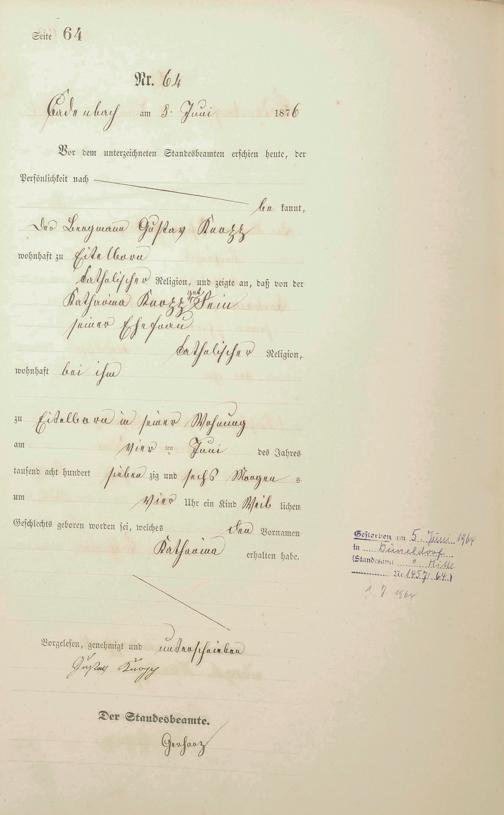 Seite 64
Nr. 64
Cadenbach am 8. Juni 1876
Vor dem unterzeichneten Standesbeamten erschien heute, der
Persönlichkeit nach
be kannt,
der Bergmann Gustav Knopp
wohnhaft zu Eitelborn
katholischer Religion, und zeigte an, daß von der
Katharina Knopp geb
seiner Ehefrau
katholischer Religion,
wohnhaft bei ihm
zu Eitelborn in seiner Wohnung
am vier ten Juni des Jahres
tausend acht hundert sieben zig und sechs Morgen s
um vier Uhr ein Kind Weib lichen
Geschlechts geboren worden sei, welches den Vornamen
Katharina erhalten habe.
Vorgelesen, genehmigt und unterschrieben
Gustav Knopp
Der Standesbeamte.
Gerharz
Gestorben am 5. Juni 1964
in
(Standesamt
Nr. 1457/64.)
1964